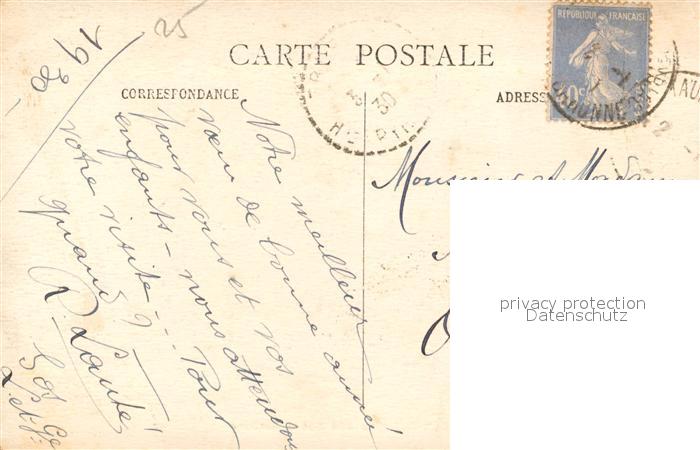 25
193
CARTE POSTALE
CORRESPONDANCE
ADRESS
REPUBLIQUE FRANÇAISE
30
Notre meilleur
vœu de bonne année
pour vous et vos
enfants – nous attendons
votre visite – ... Pour
quand ?
R.
Monsieur et Madam
privacy protection
Datenschutz